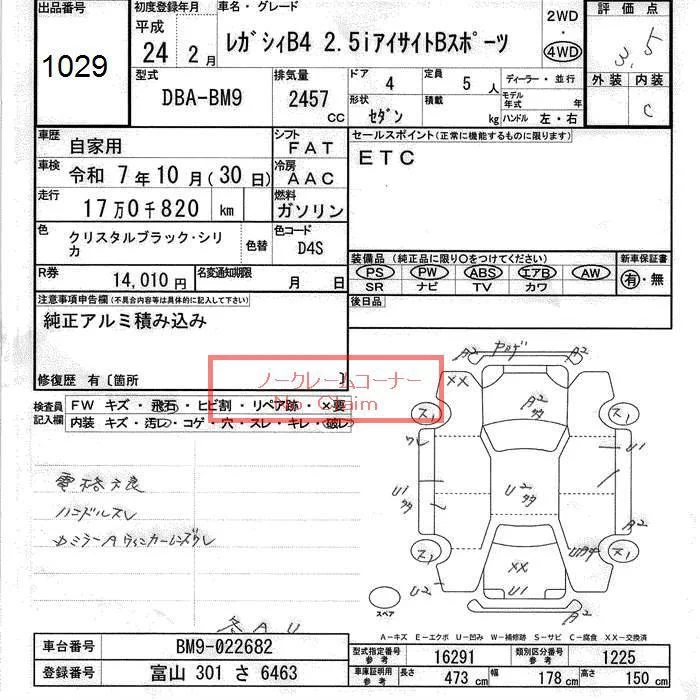 出品番号 初度登録年月 車名・グレード 2WD 評価点
1029 平成 24 2月 レガシィB4 2.5iアイサイトBスポーツ ・ 4WD 3.5
型式 排気量 ドア 4 定員 5人 ディーラー・並行 外装 内装
DBA-BM9 2457 CC 形状 セダン 積載 kg モデル年式 年 ハンドル 左・右 C
車歴 自家用 シフト FAT セールスポイント(正常に機能するものに限ります)
車検 令和 7年 10月(30日) 冷房 AAC ETC
走行 17万0千820 km 燃料 ガソリン
色 クリスタルブラック・シリカ 色替 色コード D4S
装備品(純正品に限り○をつけてください) 新車保証書
R券 14,010円 名変通知期限 月 日 PS PW ABS エアB AW 有・無
SR ナビ TV カワ
注意事項申告欄(不具合内容等は具体的に記入して下さい) 後日品
純正アルミ積み込み
修復歴 有〔箇所 〕
ノークレームコーナー
No Claim
検査員記入欄 FW キズ・飛石・ヒビ割・リペア跡・×要
内装 キズ・汚レ・コゲ・穴・スレ・キレ・破レ
A2 ヤカゲ A2
XX
A2
ス1 ス1
ワレ U1
U1 U2
A2
ス1 ス1
XX
U2 U1
A2
電格不良
ハンドルスレ
スペア
A-キズ E-エクボ U-凹み W-補修跡 S-サビ C-腐食 XX-交換済
車台番号 BM9-022682 型式指定番号 参考 16291 類別区分番号 参考 1225
登録番号 富山 301 さ 6463 車庫証明用 参考 長さ 473 cm 幅 178 cm 高さ 150 cm